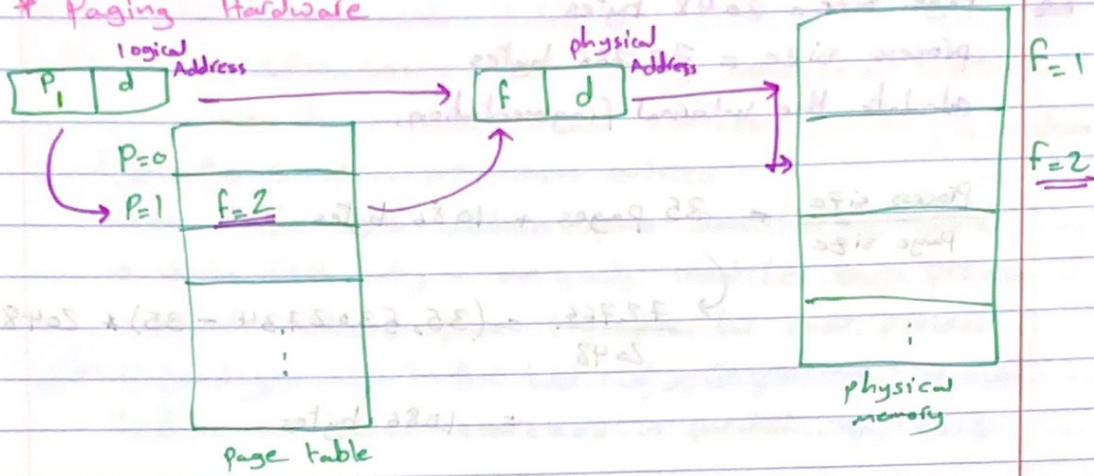 * Paging Hardware
logical Address
P1 d
physical Address
f d
f=1
P=0
f=2
P=1 f=2
page table
physical memory